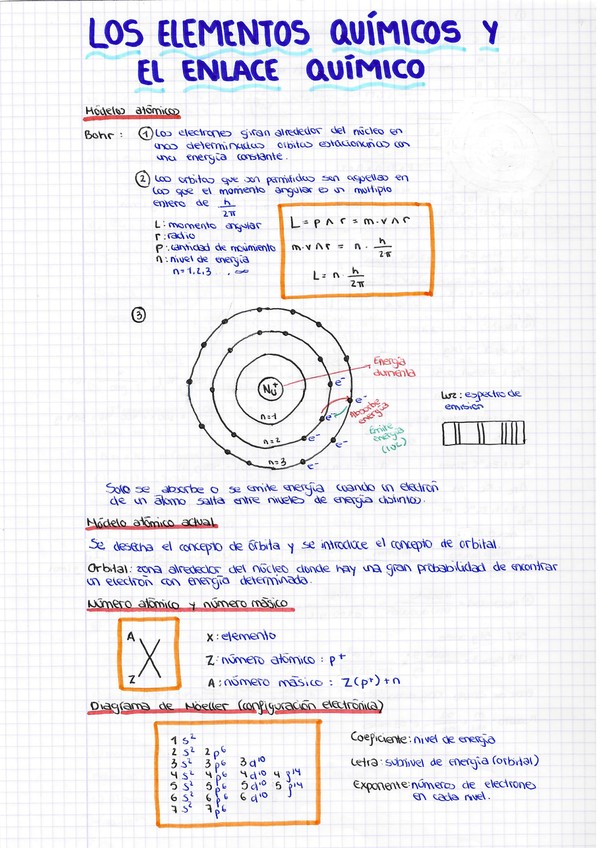 LOS ELEMENTOS QUÍMICOS Y
EL ENLACE QUÍMICO
Módelos atómicos
Bohr : ① Los electrones giran alrededor del núcleo en
unas determinadas orbitas estacionarias con
una energía constante.
② Las orbitas que son permitidas son aquellas en
las que el momento angular es un multiplo
entero de h/2π
L: momento angular
r: radio
P: cantidad de movimiento
n: nivel de energía
n= 1,2,3 . ∞
L = p ∧ r = m·v∧r
m·v∧r = n · h/2π
L = n · h/2π
③
Energía
aumenta
Nu+
e-
e-
Absorbe
energía
Emite
energía
(luz)
e-
e-
e-
n=1
n=2
n=3
Luz: espectro de
emisión
Solo se absorbe o se emite energía cuando un electrón
de un átomo salta entre niveles de energía distintos.
Módelo atómico actual
Se desecha el concepto de órbita y se introduce el concepto de orbital.
Orbital: zona alrededor del núcleo donde hay una gran probabilidad de encontrar
un electrón con energía determinada.
Número atómico y número másico
A
X
Z
X: elemento
Z: número atómico : p+
A: número másico : Z(p+)+n
Diagrama de Moeller (configuración electrónica)
1s² 
2s² 2p⁶
3s² 3p⁶ 3d¹⁰
4s² 4p⁶ 4d¹⁰ 4f¹⁴
5s² 5p⁶ 5d¹⁰ 5f¹⁴
6s² 6p⁶ 6d¹⁰
7s² 7p⁶
Coeficiente: nivel de energía
Letra: subnivel de energía (orbital)
Exponente: números de electrones
en cada nivel.